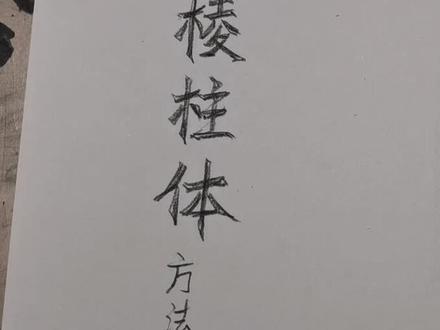 棱柱体
方法